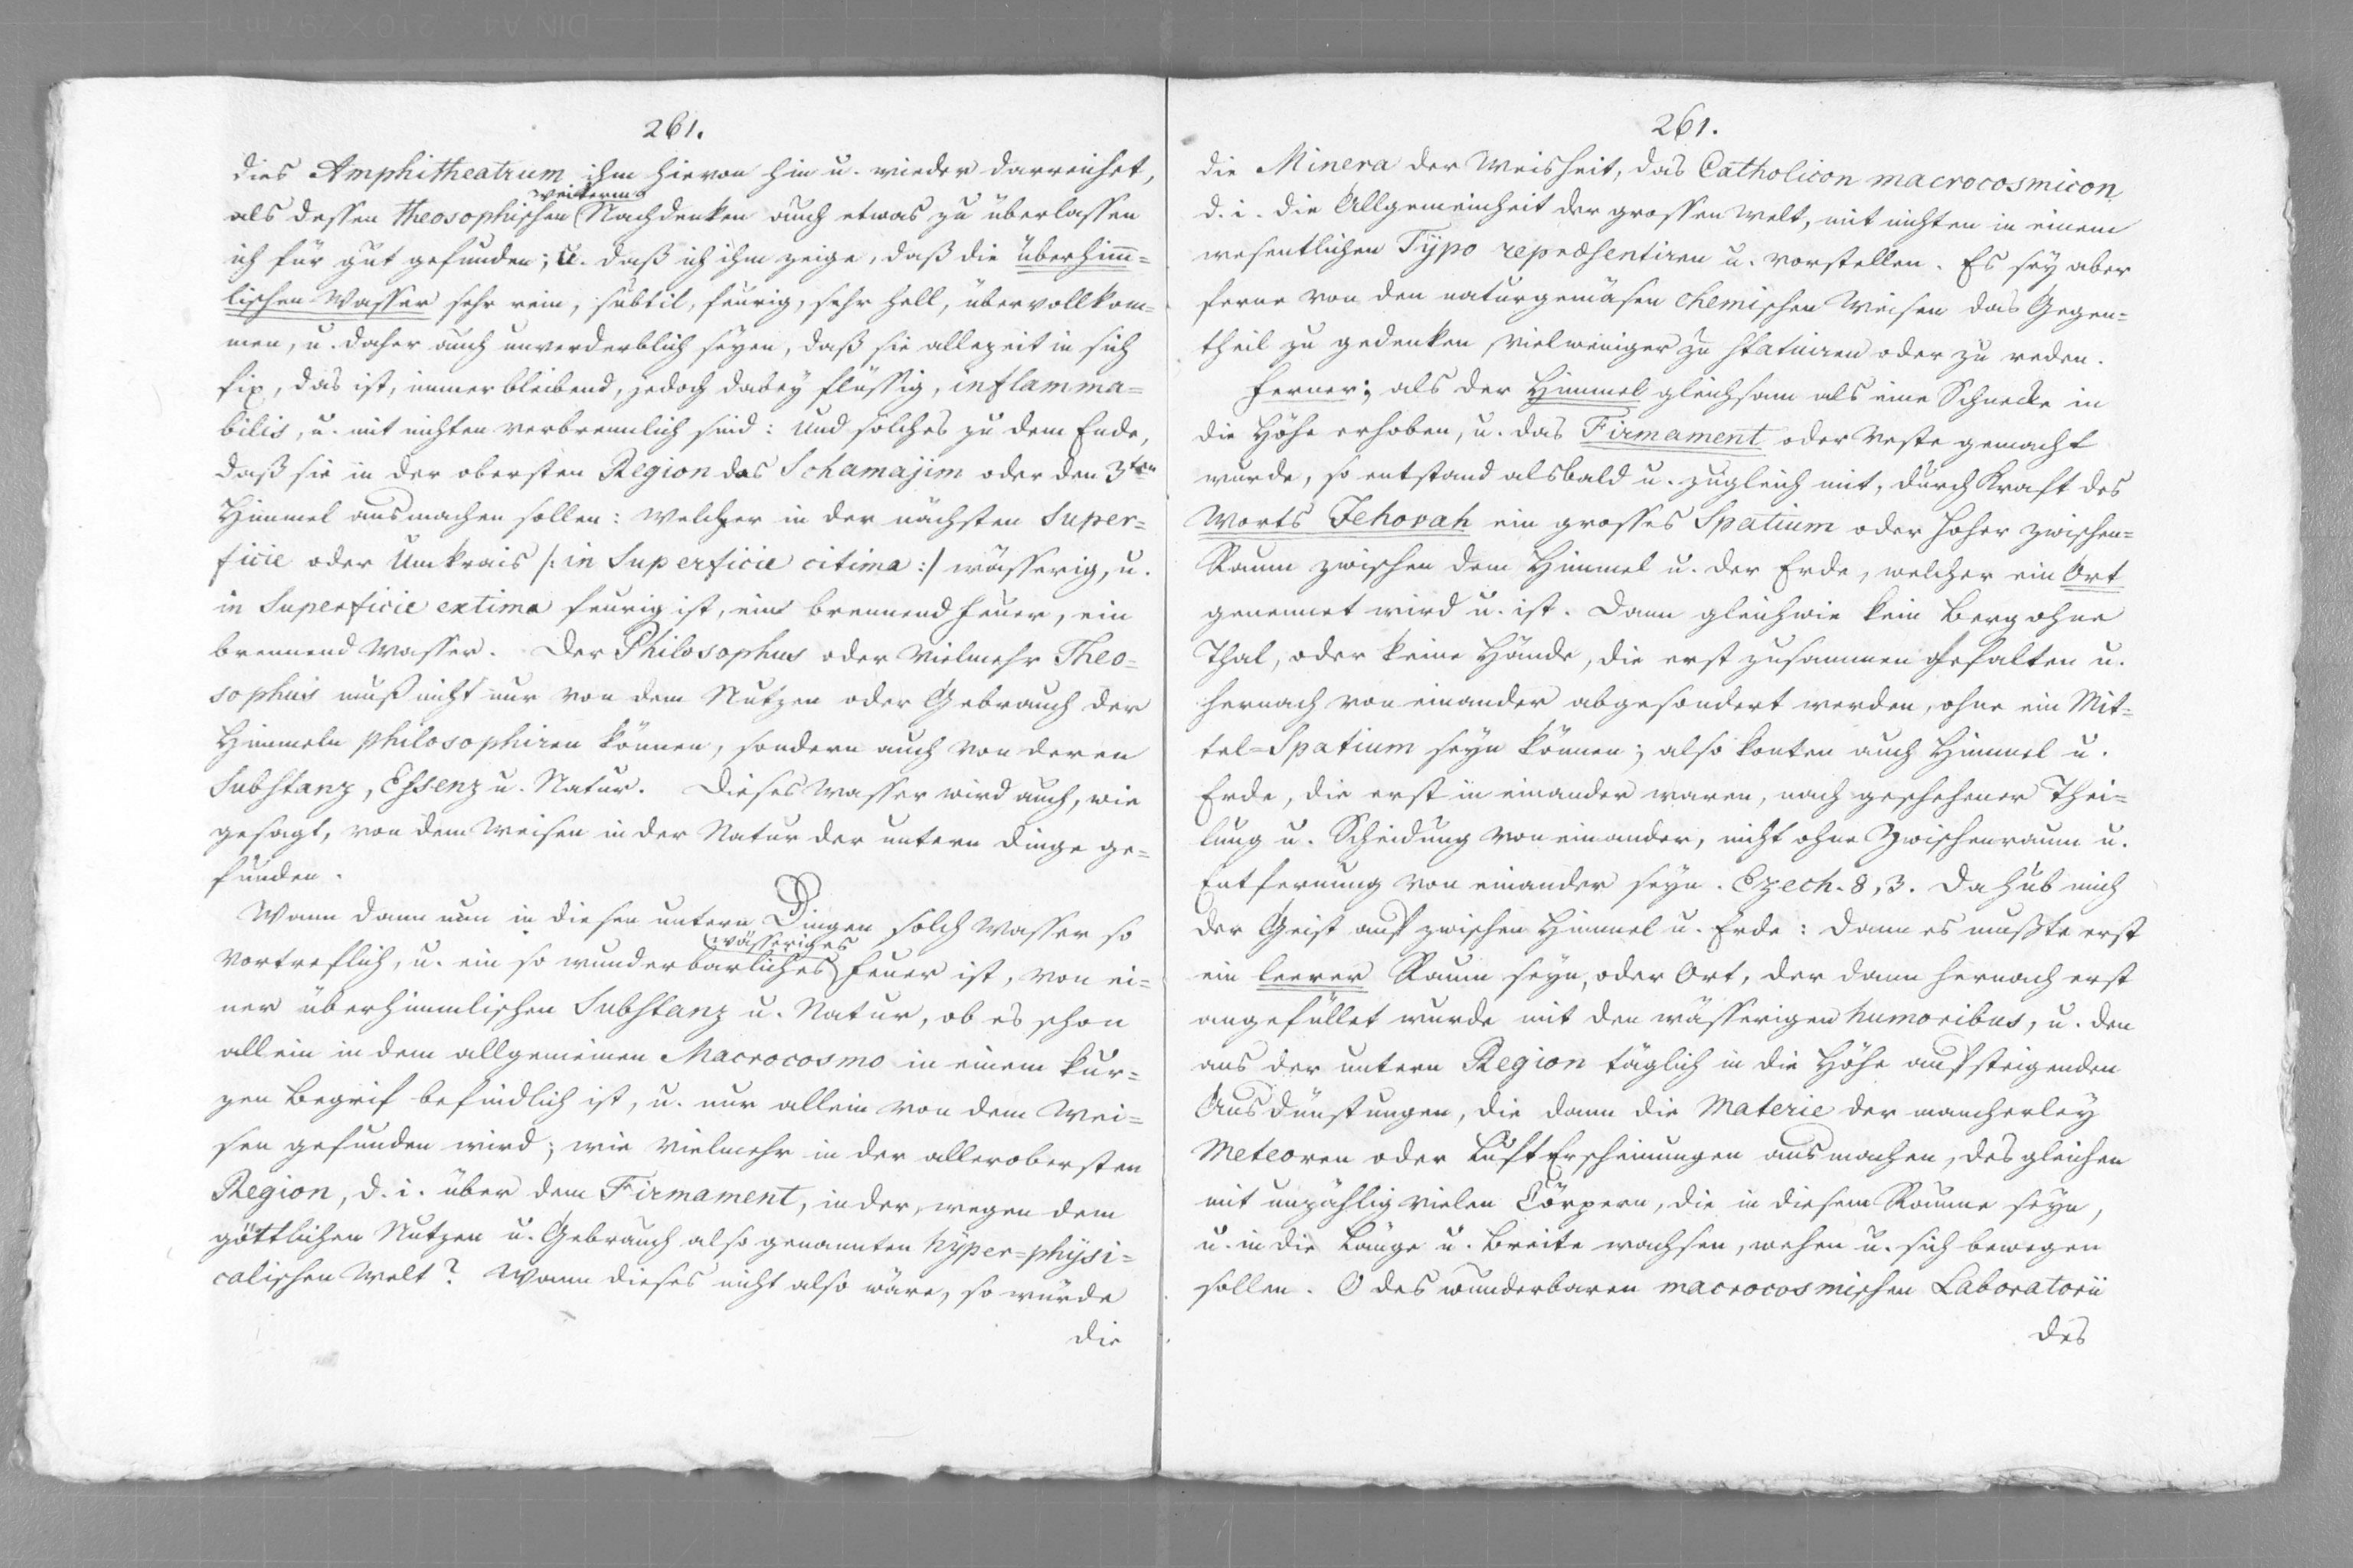 261.
dies Amphitheatrum ihm hievon hin u. wieder darreichet,
weiterm
als dessen theosophischen Nachdenken auch etwas zu überlassen
ich für gut gefunden; u. daß ich ihm zeige, daß die überhim̅=
lischen Wasser sehr rein, subtil, feurig, sehr hell, übervollkom=
men, u. daher auch unverderblich seyen, daß sie allezeit in sich
fix, das ist, immer bleibend, jedoch dabey flüssig, inflamma=
bilis, u. mit nichten verbrennlich sind: Und solches zu dem Ende,
daß sie in der obersten Region das Schamajim oder den 3ten
Himmel ausmachen sollen: Welcher in der nächsten Super=
ficie oder Umkrais /: in Superficie citima :/ wässerig, u.
in Superficie extima feurig ist, ein brennend Feuer, ein
brennend Wasser. Der Philosophus oder Vielmehr Theo=
sophus muß nicht nur von dem Nutzen oder Gebrauch der
Himmeln philosophiren können, sondern auch von deren
Substanz, Essenz u. Natur. Dieses Wasser wird auch, wie
gesagt, von dem Weisen in der Natur der untern Dinge ge=
funden.
Wann dann nun in diesen untern Dingen solch Wasser so
wässeriges
vortreflich, u. ein so wunderbarliches Feuer ist, von ei=
ner überhimmlischen Substanz u. Natur, ob es schon
allein in dem allgemeinen Macrocosmo in einem kur=
zen Begrif befindlich ist, u. nur allein von dem Wei=
sen gefunden wird; wie vielmehr in der allerobersten
Region, d. i. über dem Firmament, in der, wegen dem
göttlichen Nutzen u. Gebrauch also genannten hyper=physi=
calischen Welt? Wann dieses nicht also wäre, so würde
die
261.
die Minera der Weisheit, das Catholicon macrocosmicon,
d. i. die Allgemeinheit der grossen Welt, mit nichten in einem
wesentlichen Typo repræsentiren u. vorstellen. Es sey aber
ferne von den naturgemäsen chemischen Weisen das Gegen=
theil zu gedenken, vielweniger zu statuiren oder zu reden.
Ferner; als der Himmel gleichsam als eine Schnecke in
die Höhe erhoben, u. das Firmament oder Veste gemacht
wurde, so entstand alsbald u. zugleich mit, durch Kraft des
Worts Jehovah ein grosses Spatium oder hoher zwischen=
Raum zwischen dem Himmel u. der Erde, welcher ein Ort
genennet wird u. ist. Dann gleichwie kein Berg ohne
Thal, oder keine Hände, die erst zusammen gefalten u.
hernach von einander abgesondert werden, ohne ein Mit=
tel=Spatium seyn können; also konten auch Himmel u.
Erde, die erst in einander waren, nach geschehener Thei=
lung u. Scheidung von einander, nicht ohne Zwischenraum u.
Entfernung von einander seyn. Ezech. 8, 3. Da hub mich
der Geist auf zwischen Himmel u. Erde: Dann es mußte erst
ein leerer Raum seyn, oder Ort, der dann hernach erst
angefüllet wurde mit den wässerigen humoribus, u. den
aus der untern Region täglich in die Höhe aufsteigenden
Ausdünstungen, die dann die Materie der mancherley
Meteoren oder Luft Erscheinungen ausmachen, desgleichen
mit unzählig vielen Cörpern, die in diesem Raume seyn,
u. in die Länge u. Breite wachsen, wehen u. sich bewegen
sollen. O des wunderbaren macrocosmischen Laboratorii
des